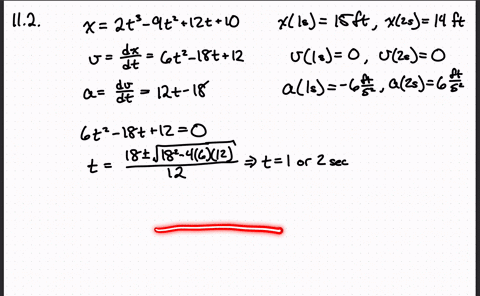 11.2. x = 2t³-9t²+12t+10 x(1s) = 15ft, x(2s) = 14 ft
v = dx/dt = 6t²-18t+12 v(1s) = 0, v(2s) = 0
a = dv/dt = 12t-18 a(1s) = -6 ft/s², a(2s) = 6 ft/s²
6t²-18t+12 = 0
t = 18±√(18²-4(6)(12))/12 ⇒ t=1 or 2 sec